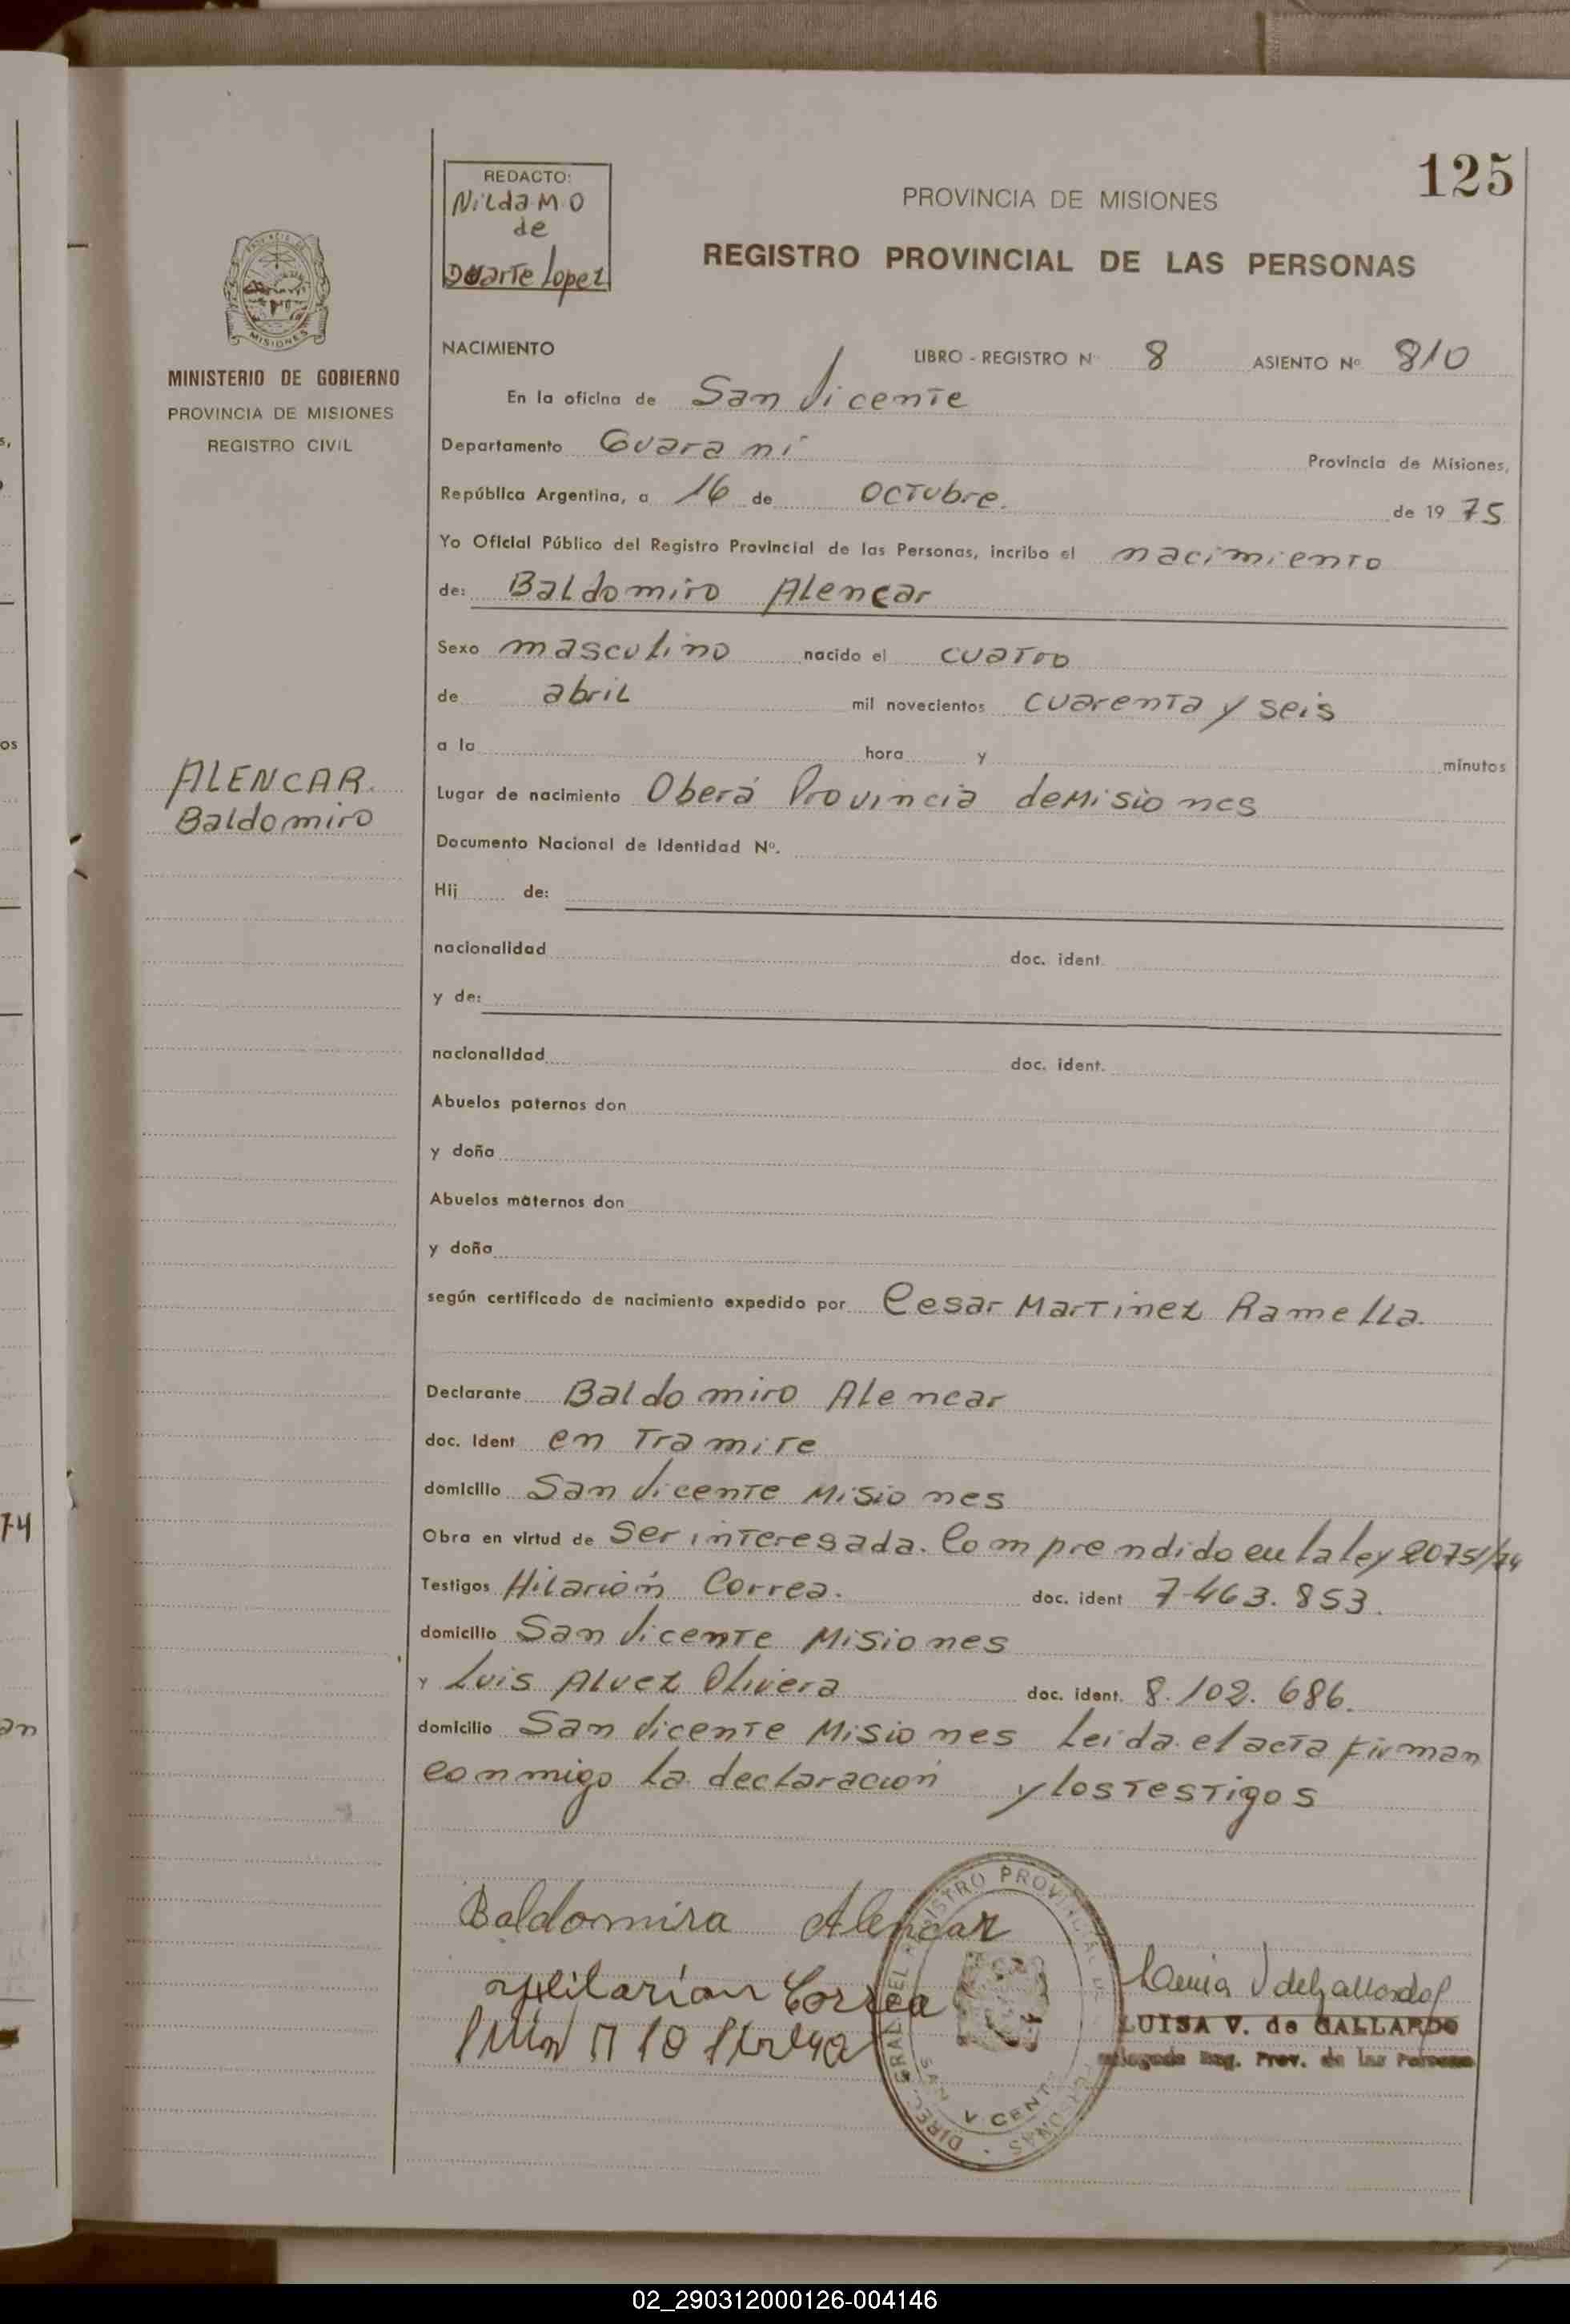 125
REDACTO:
Nilda M O
de
Duarte Lopez
PROVINCIA DE MISIONES
REGISTRO PROVINCIAL DE LAS PERSONAS
MISIONES
MINISTERIO DE GOBIERNO
PROVINCIA DE MISIONES
REGISTRO CIVIL
NACIMIENTO LIBRO - REGISTRO N° 8 ASIENTO Nº 810
En la oficina de San Vicente
Departamento Guaraní Provincia de Misiones,
República Argentina, a 16 de Octubre. de 19 75
Yo Oficial Público del Registro Provincial de las Personas, incribo el nacimiento
de: Baldomiro Alencar
Sexo masculino nacido el cuatro
de abril mil novecientos cuarenta y seis
a la hora y minutos
ALENCAR.
Baldomiro
Lugar de nacimiento Oberá Provincia de Misiones
Documento Nacional de Identidad Nº.
Hij de:
nacionalidad doc. ident.
y de:
nacionalidad doc. ident.
Abuelos paternos don
y doña
Abuelos maternos don
y doña
según certificado de nacimiento expedido por Cesar Martinez Ramella.
Declarante Baldomiro Alencar
doc. Ident en Tramite
domicilio San Vicente Misiones
Obra en virtud de Ser interesada. Comprendido en la ley 20751/74
Testigos Hilarión Correa. doc. ident 7.463.853.
domicilio San Vicente Misiones
y Luis Alvez Olivera doc. ident. 8.102.686.
domicilio San Vicente Misiones Leida el acta firman
conmigo la declaración y los testigos
Baldomira Alencar
Hilarían Correa
LUISA V. de GALLARDO
Reg. Prov. de las Personas
DIREC. GRAL. DEL REGISTRO PROVINCIAL DE LAS PERSONAS
SAN VICENTE
74
an
s,
os
02_290312000126-004146